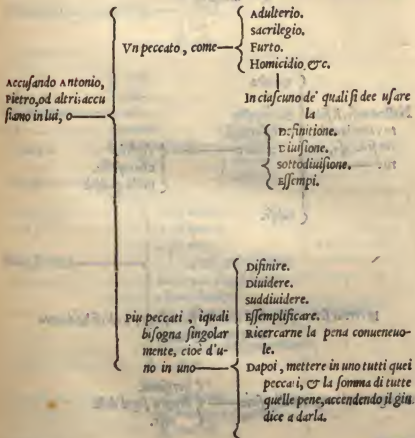 Accuſando Antonio,
Pietro, od altri; accu
ſiamo in lui, o
Vn peccato, come
Adulterio.
sacrilegio.
Furto.
Homicidio, &c.
In ciaſcuno de' quali ſi dee uſare
la
Definitione.
Diuiſione.
sottodiuiſione.
Eſſempi.
Piu peccati, iquali
biſogna ſingolar
mente, cioè d'u-
no in uno
Difinire.
Diuidere.
suddiuidere.
Eſſemplificare.
Ricercarne la pena conueneuo-
le.
Dapoi, mettere in uno tutti quei
peccati, & la ſomma di tutte
quelle pene, accendendo il giu
dice a darla.